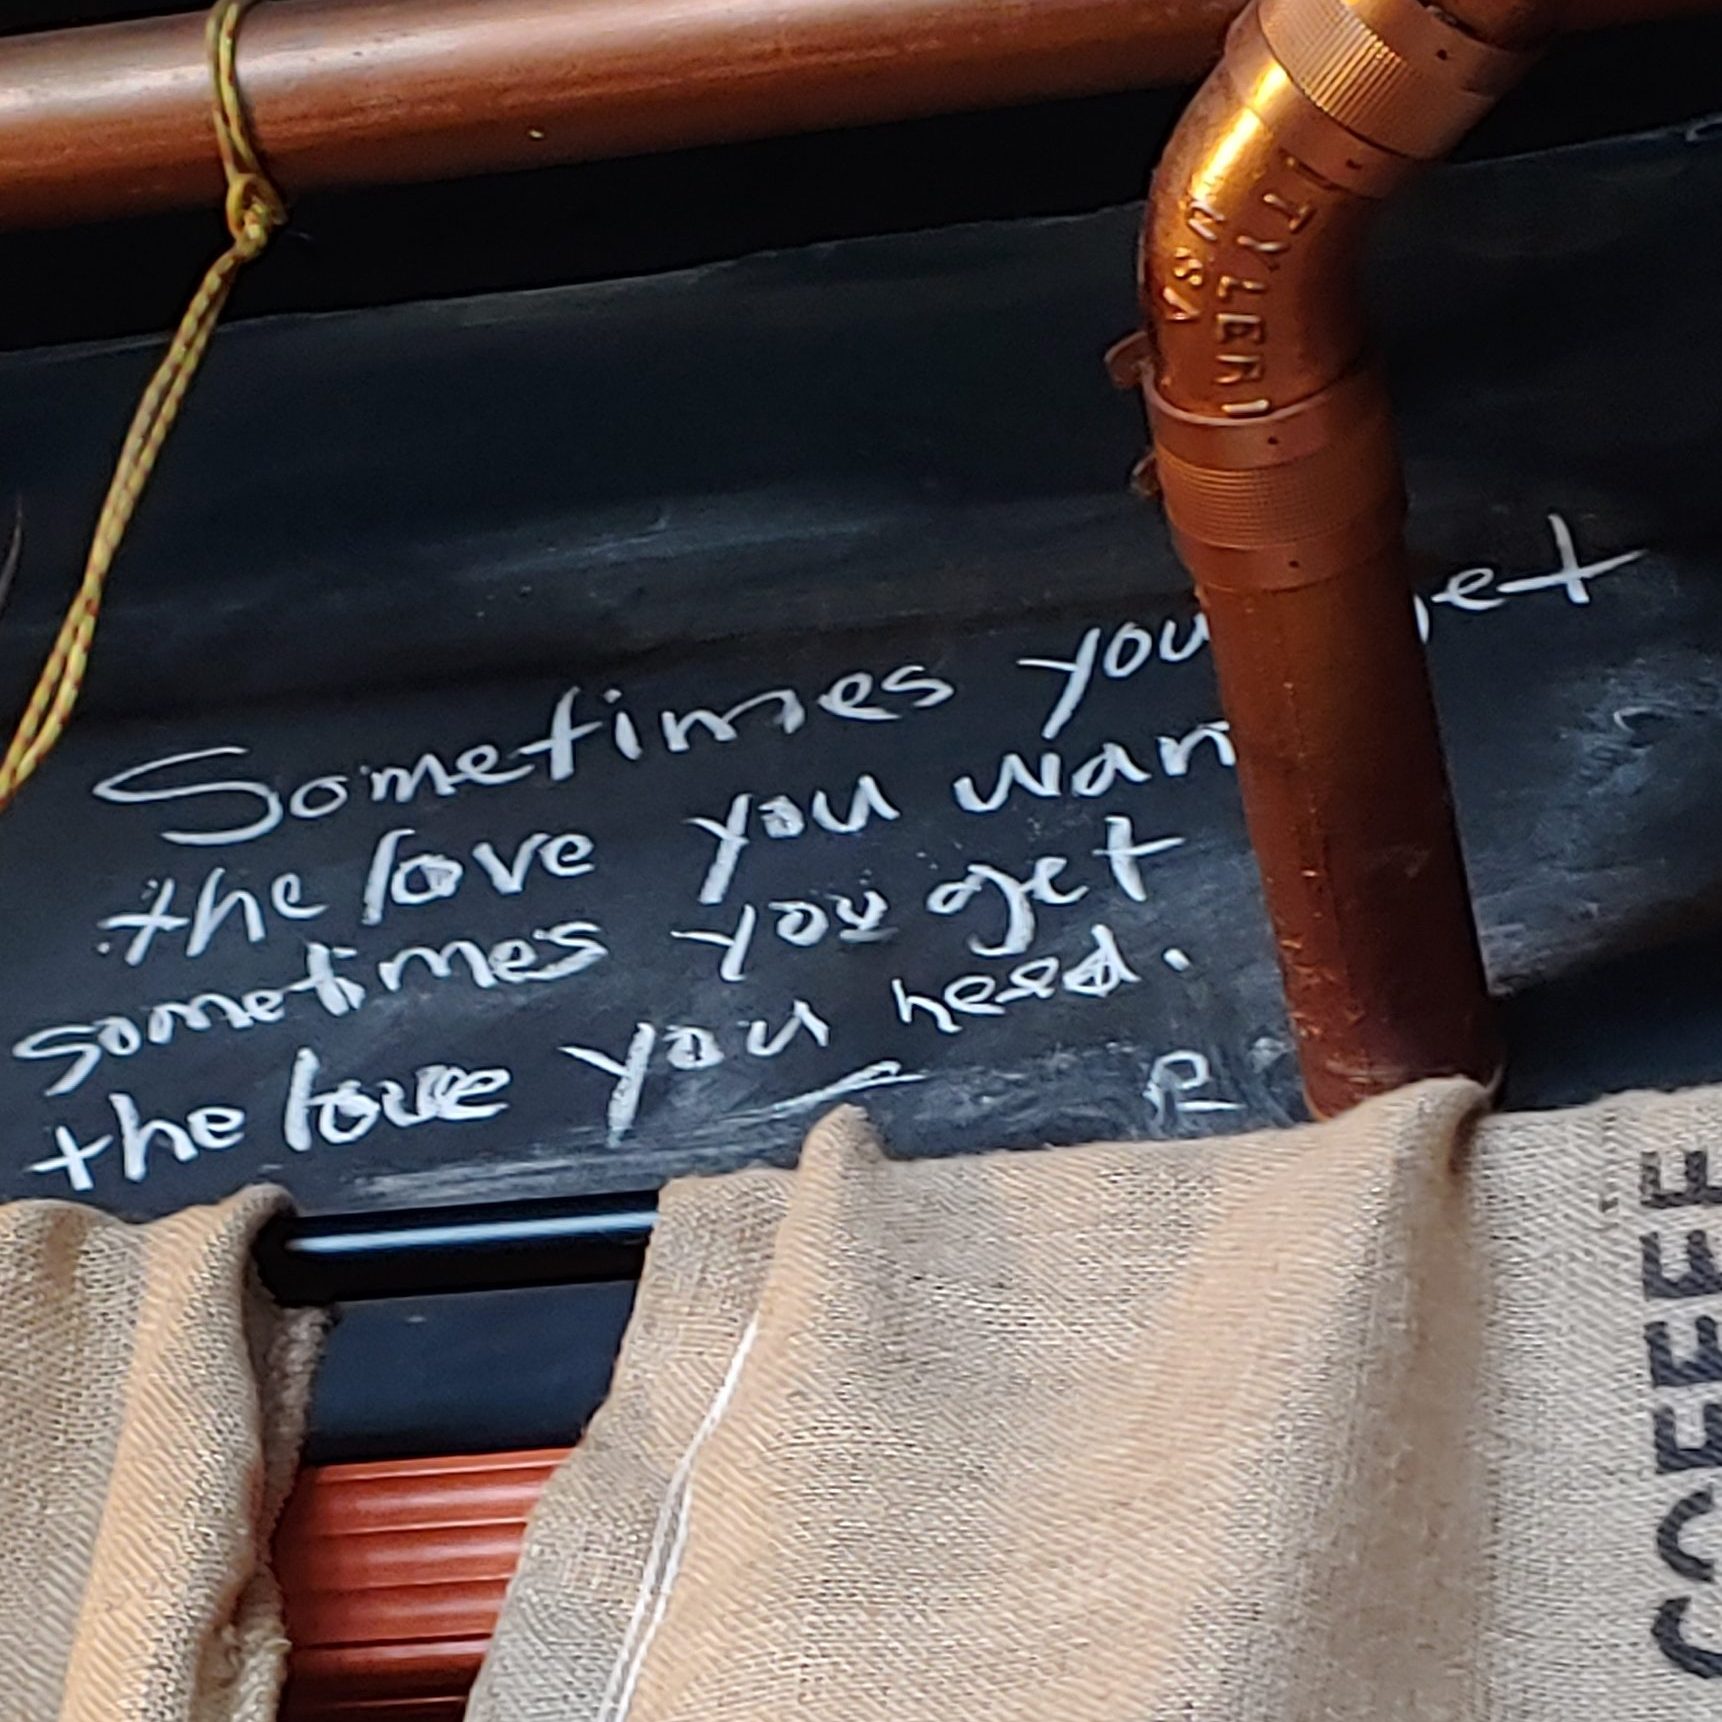 TYLER
USA
Sometimes you get
the love you want
sometimes you get
the love you need.
COFFEE